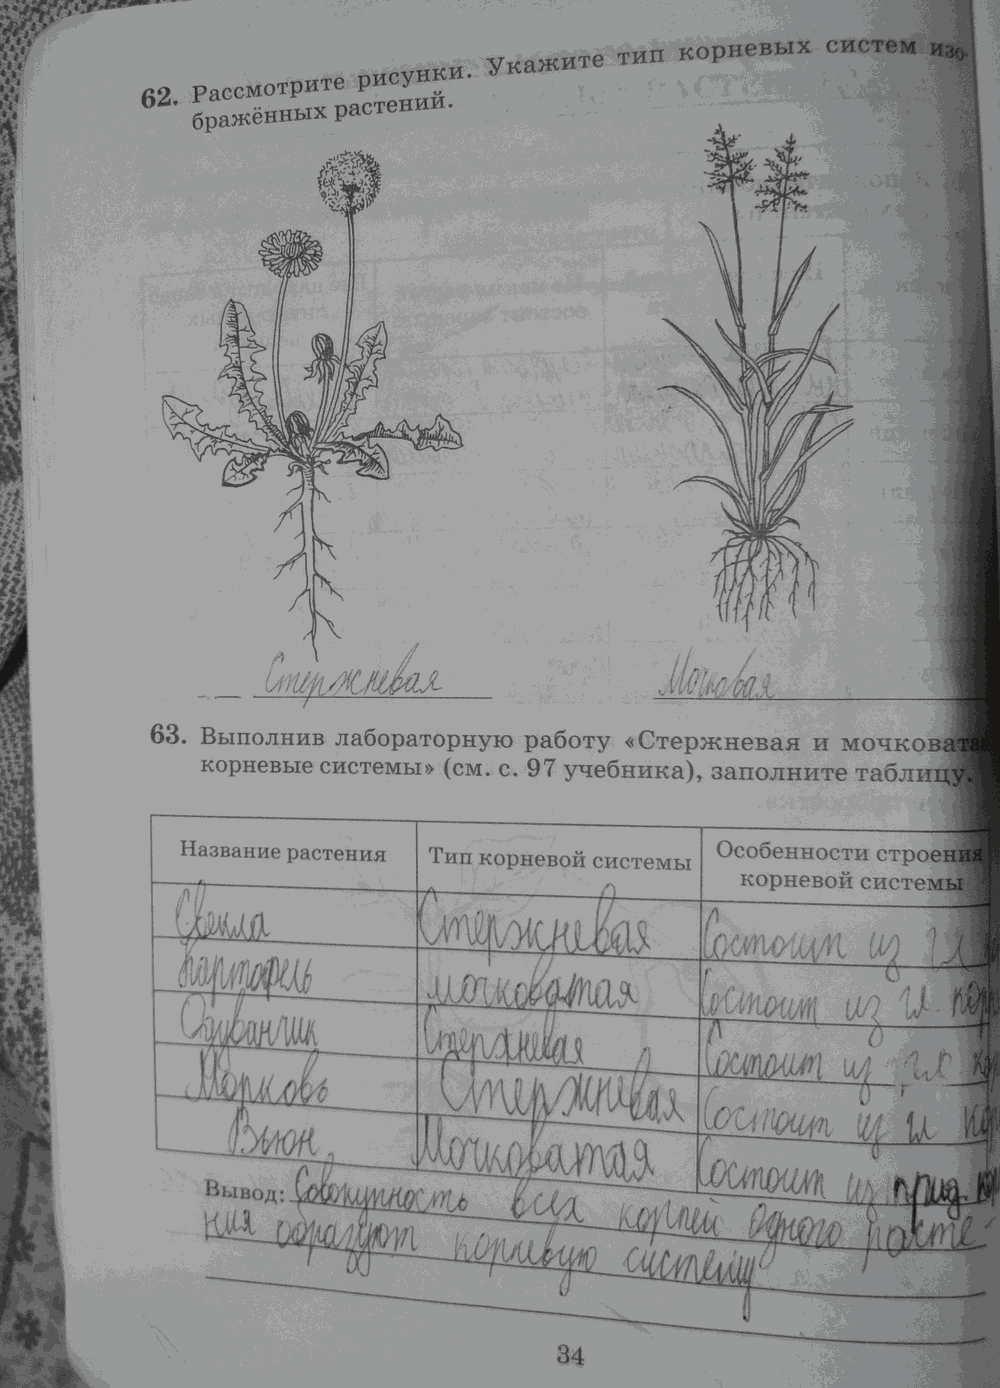 62. Рассмотрите рисунки. Укажите тип корневых систем изо-
бражённых растений.
Стержневая
Мочковая
63. Выполнив лабораторную работу «Стержневая и мочковата
корневые системы» (см. с. 97 учебника), заполните таблицу.
Название растения
Тип корневой системы
Особенности строения
корневой системы
Свекла
Стержневая
Состоит из гл
Картофель
мочковатая
Состоит из гл кор
Одуванчик
Стержневая
Состоит из гл ко
Морковь
Стержневая
Состоит из гл кор
Вьюн
Мочковатая
Состоит из прид. ко
Вывод: Совокупность всех корней одного расте-
ния образуют корневую систему
34